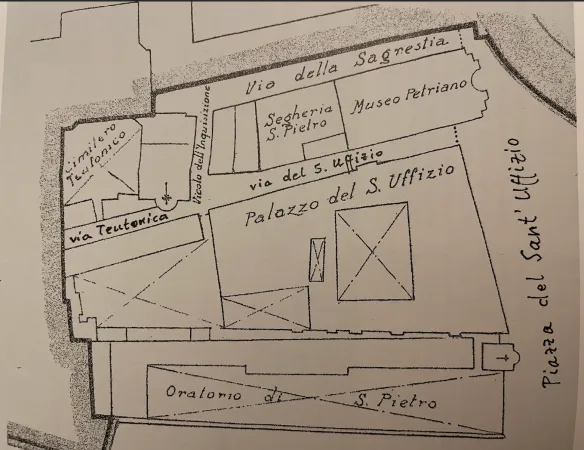 Via della Sagrestia
Vicolo dell'Inquisizione
Segheria
S. Pietro
Museo Petriano
Cimitero
Teutonico
via del S. Uffizio
via Teutonica
Palazzo del S. Uffizio
Piazza del Sant' Uffizio
Oratorio di S. Pietro